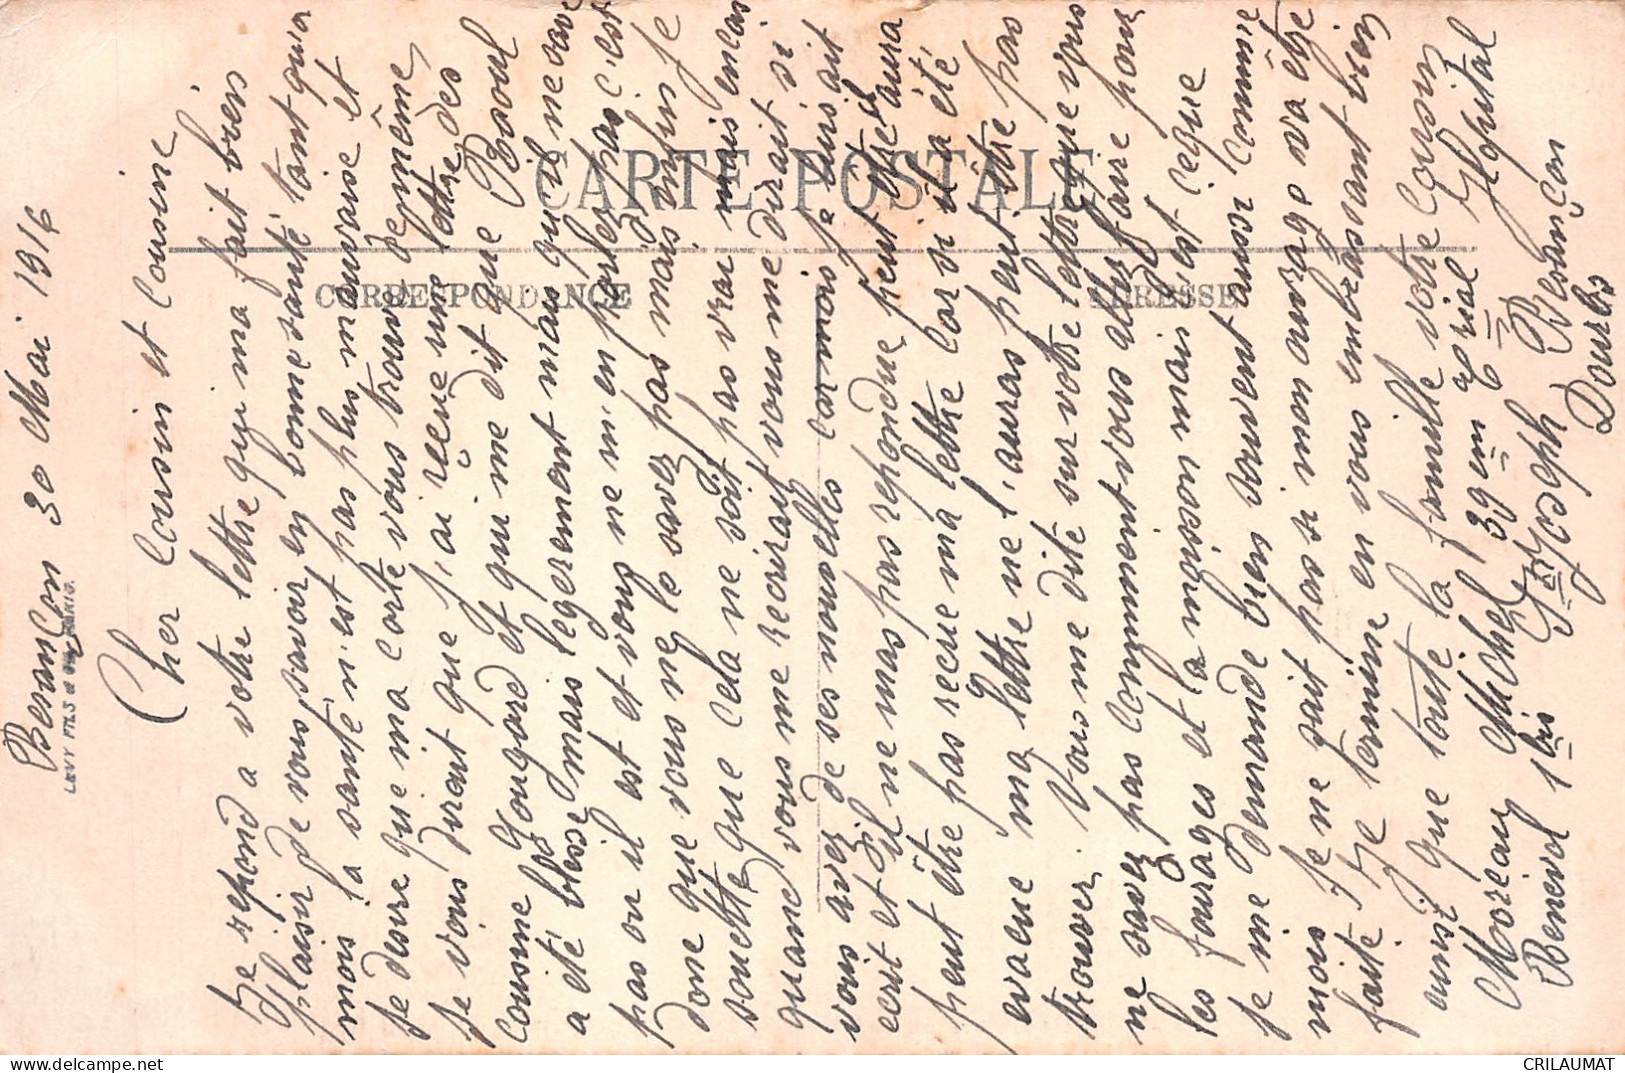 Besançon 30 Mai 1916
Cher Cousin et Cousine
Je repond a votre lettre qui ma fait bien
plaisir de vous savoir en bonne santé tant qu'a
mois la santé n'est pas plus mauvaise et
je desire que ma carte vous trouve de même
Je vous dirait que j'ai reçue une lettre des
Cousine Gougard et qui me dit que Raoul
a été blessé mais legerement mais qu'il ne save
pas ou il est et vous ne m'en parlez pas c'est
donc que vous ne le savez pas mais enfin je
souette que cela ne soit pas vrai mais en cas
quand vous me recrirait vous me dirait si
vous avez de ses nouvelles car mois je lui sait
ecrit et il ne mas pas repondue peut être il aura
peut être pas recue ma lettre car si il a été
evacue ma lettre ne l'auras peut être pas
trouver. Vous me dite sur votre lettre que vous
ne savez pas comment vous allez faire pour
les fourages et la moisson mais s'est ceque
je me demande bien souvent aussi comme
mois je ne sait pas si mon ouvrage va être
faite. Je termine en vous embrassant bien
ainsi que toute la famille votre Cousin
Moreau Michel 39em térial Hopital
Benevol 1bis St Joseph Besançon
Doubs
CARTE POSTALE
CORRESPONDANCE
ADRESSE
LEVY FILS & Cie PARIS.
CRILAUMAT